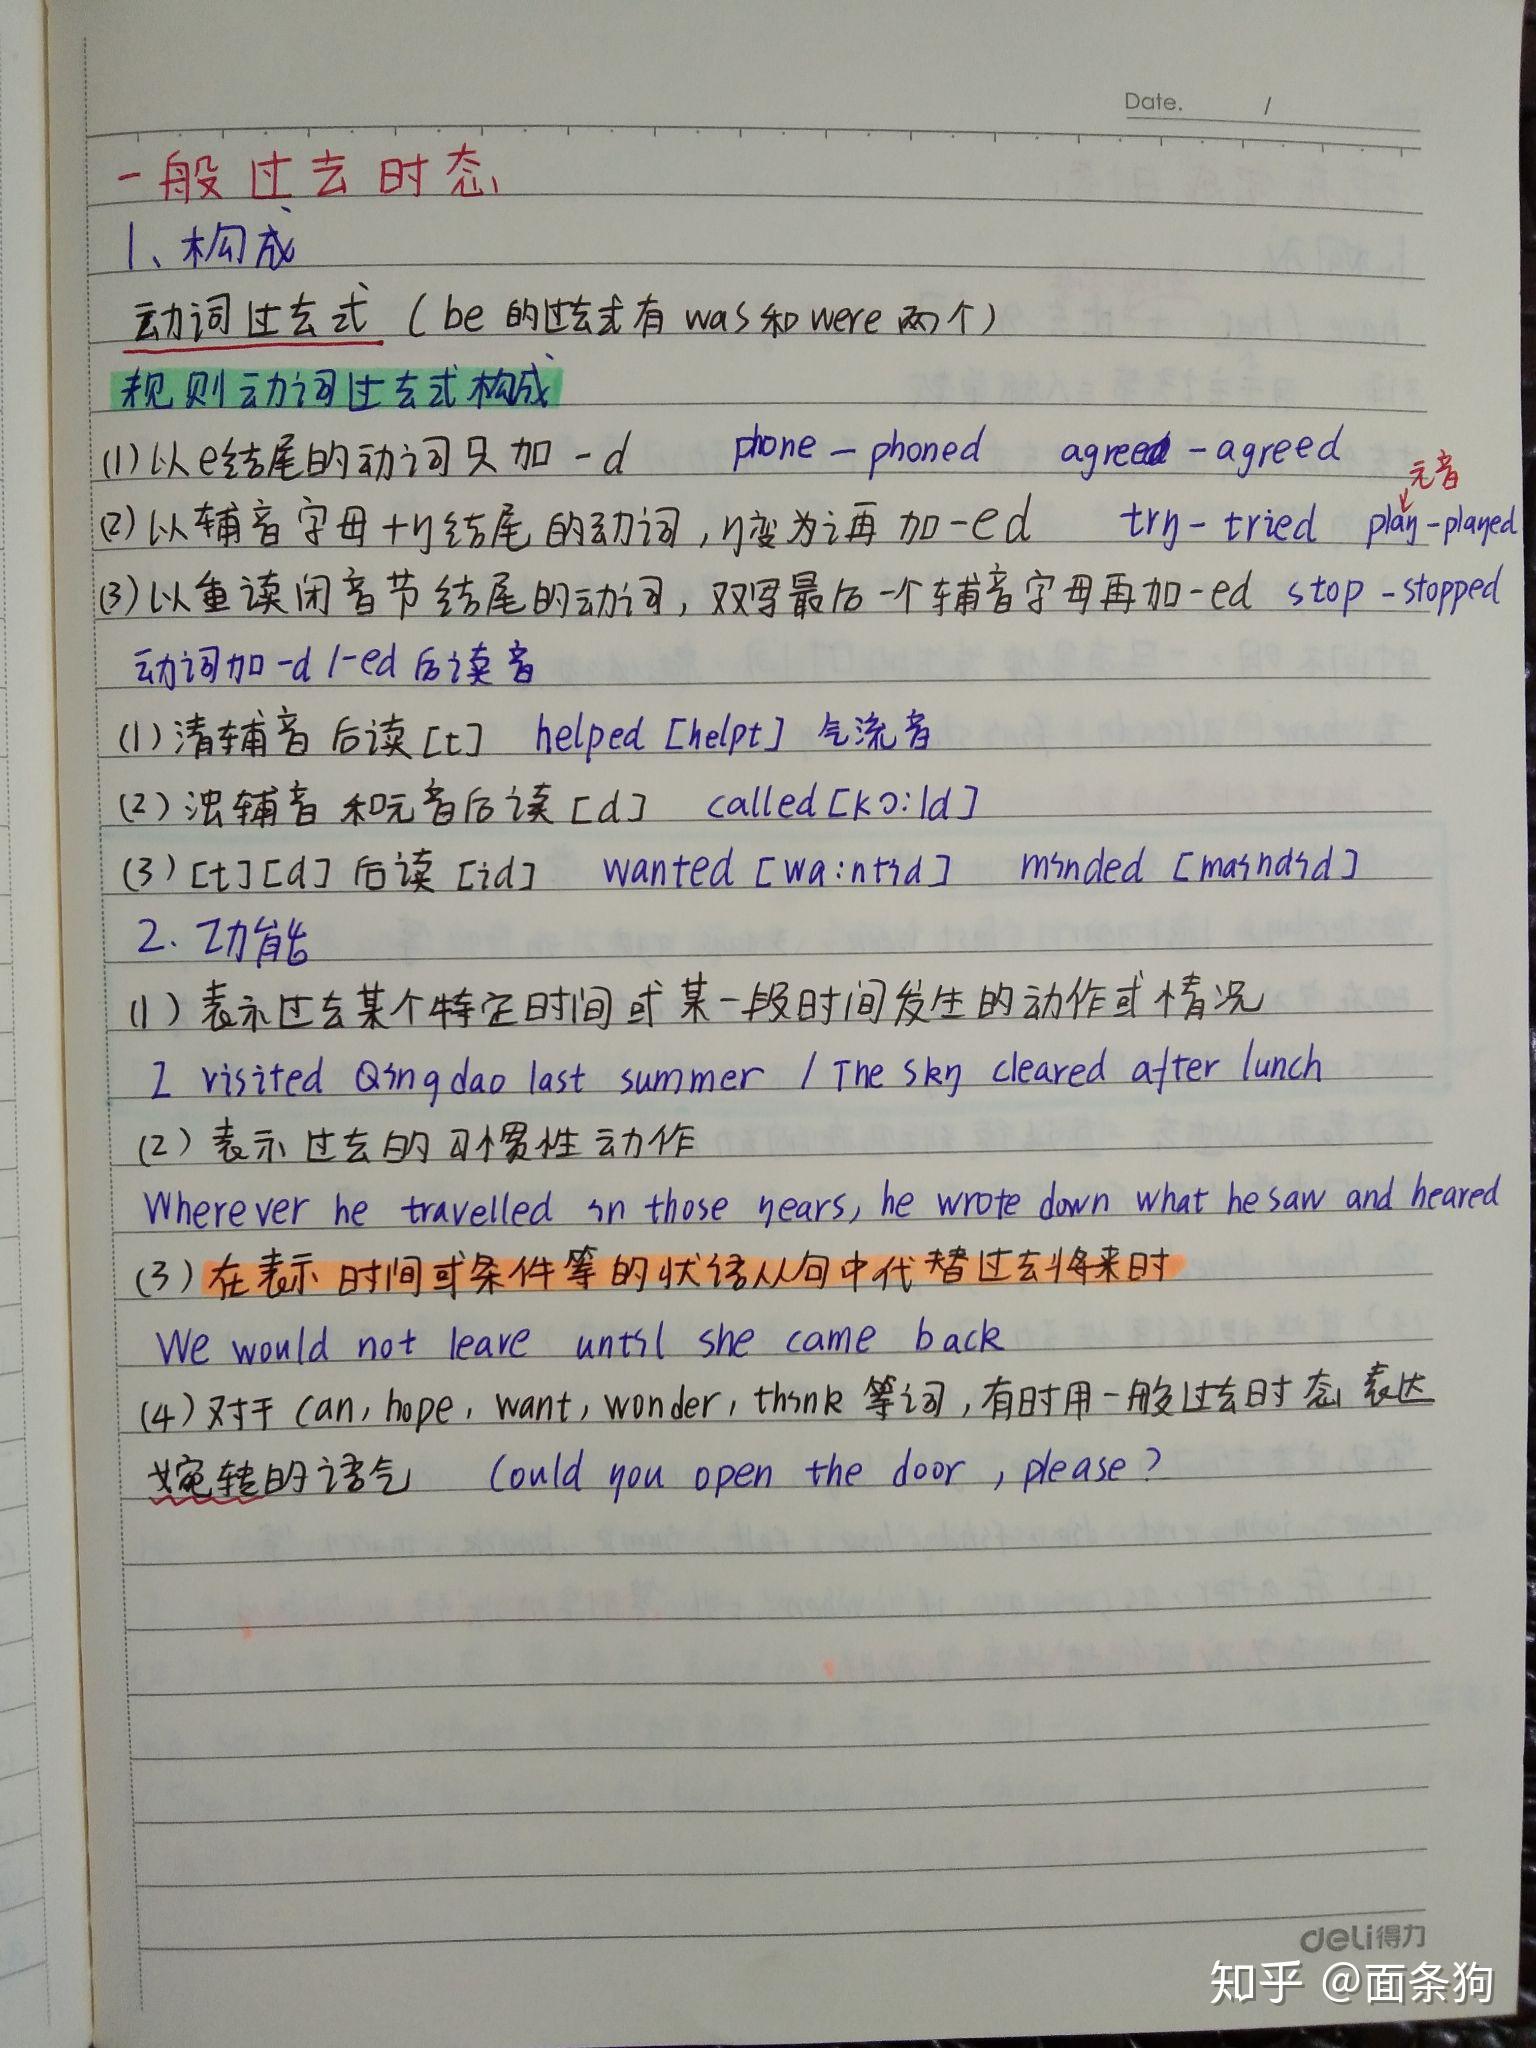 Date. /
一般过去时态
1、构成
动词过去式（be的过去式有was和were两个）
规则动词过去式构成
(1)以e结尾的动词只加-d phone-phoned agreed-agreed
元音
(2)以辅音字母+y结尾的动词，y变为i再加-ed try-tried play-played
(3)以重读闭音节结尾的动词，双写最后一个辅音字母再加-ed stop-stopped
动词加-d/-ed后读音
(1)清辅音后读[t] helped [helpt] 气流音
(2)浊辅音和元音后读[d] called[kɔ:ld]
(3)[t][d]后读[id] wanted [wa:ntid] minded [maindid]
2.功能
(1)表示过去某个特定时间或某一段时间发生的动作或情况
I visited Qingdao last summer / The sky cleared after lunch
(2)表示过去的习惯性动作
Wherever he travelled in those years, he wrote down what he saw and heared
(3)在表示时间或条件等的状语从句中代替过去将来时
We would not leave until she came back
(4)对于can, hope, want, wonder, think等词，有时用一般过去时态表达
婉转的语气 Could you open the door, please?
deli得力
知乎 @面条狗